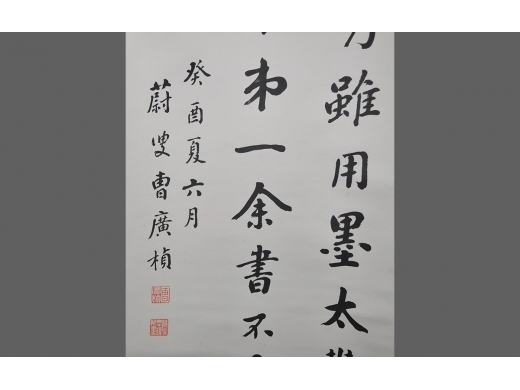 雖用墨太
弟一余書不
癸酉夏六月
蔚叟曹廣楨